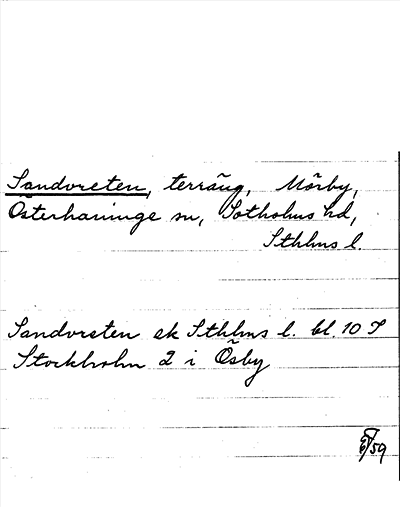 Sandvreten, terräng, Mörby,
Österhaninge sn, Sotholms hd,
Sthlms l.
Sandvreten ek Sthlms l. bl. 10 I
Stockholm 2 i Ösby
/59